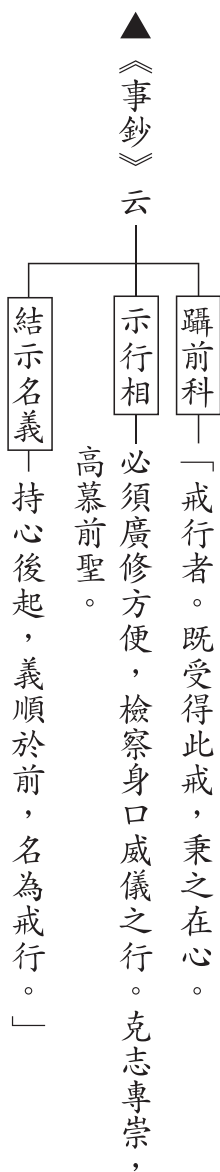 ▲《事鈔》云
躡前科
「戒行者。既受得此戒，秉之在心。
示行相
必須廣修方便，檢察身口威儀之行。克志專崇，
高慕前聖。
結示名義
持心後起，義順於前，名為戒行。」